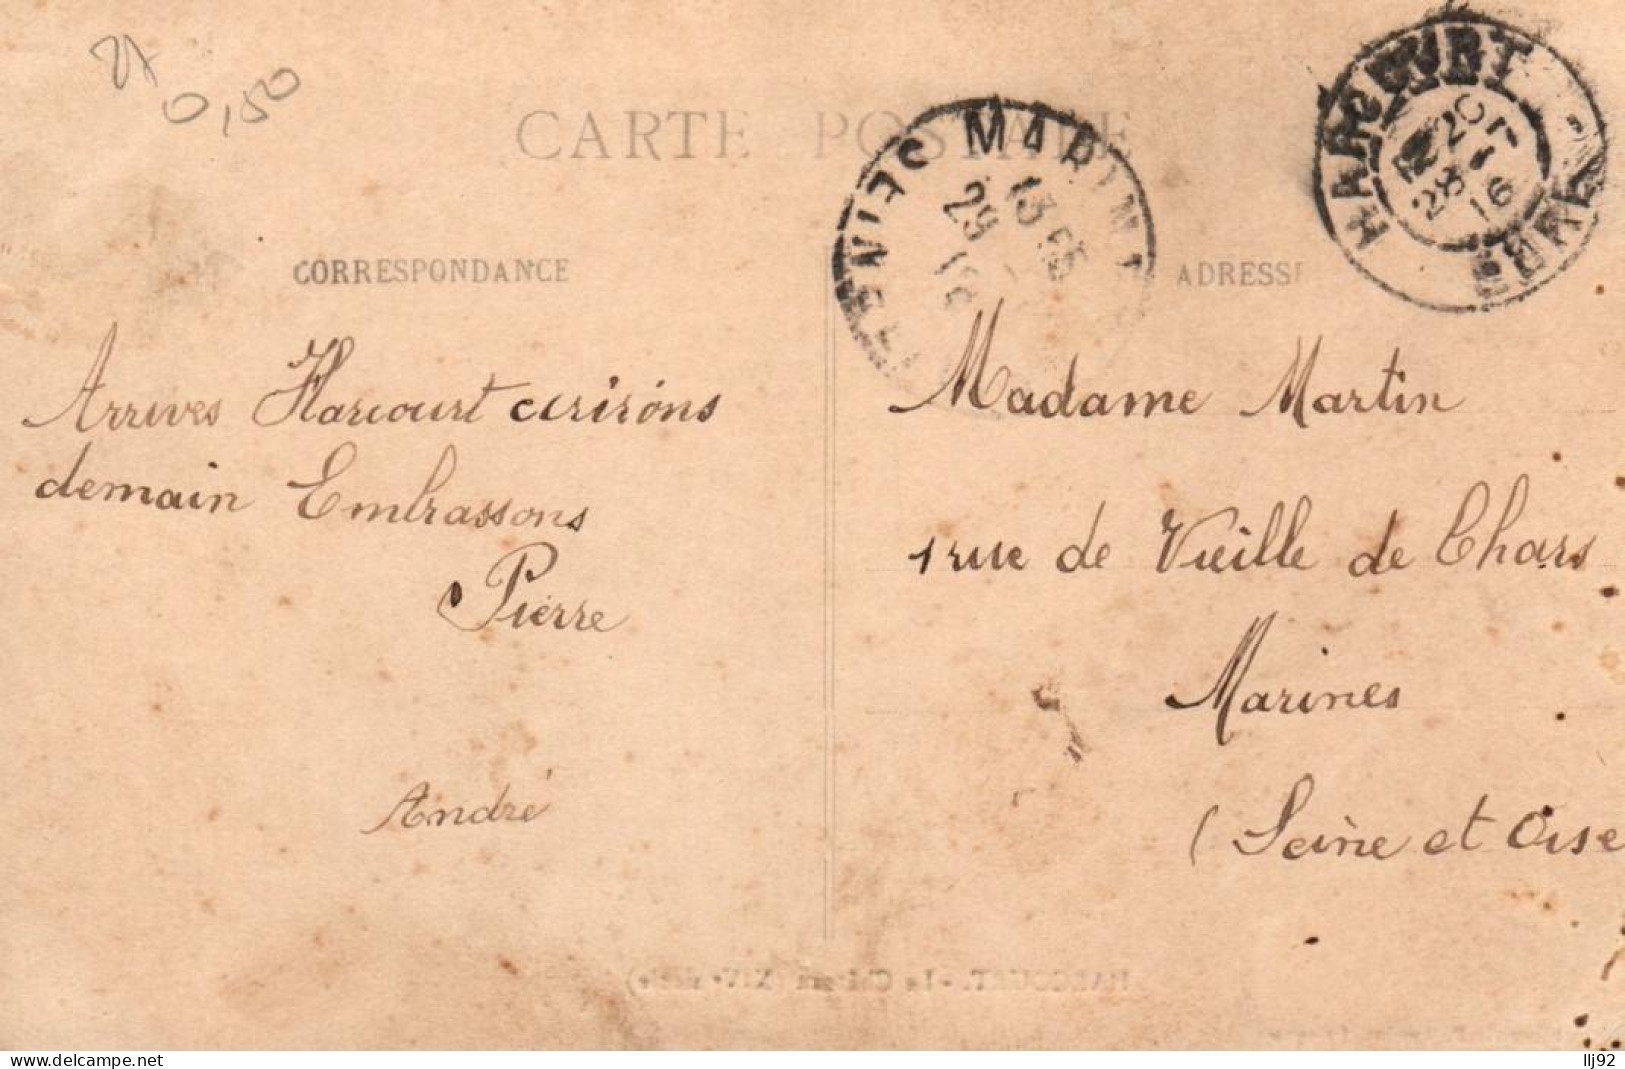 21
0,50
CARTE POSTALE
HARCOURT
EURE
20
28
16
MARINES
SEINE-ET-
13
29
CORRESPONDANCE
ADRESSE
Arrives Harcourt ecrirons
demain Embrassons
Pierre
André
Madame Martin
1 rue de Vieille de Chars
Marines
(Seine et Oise
HARCOURT. - Le Château (XIVe siècle)
llj92